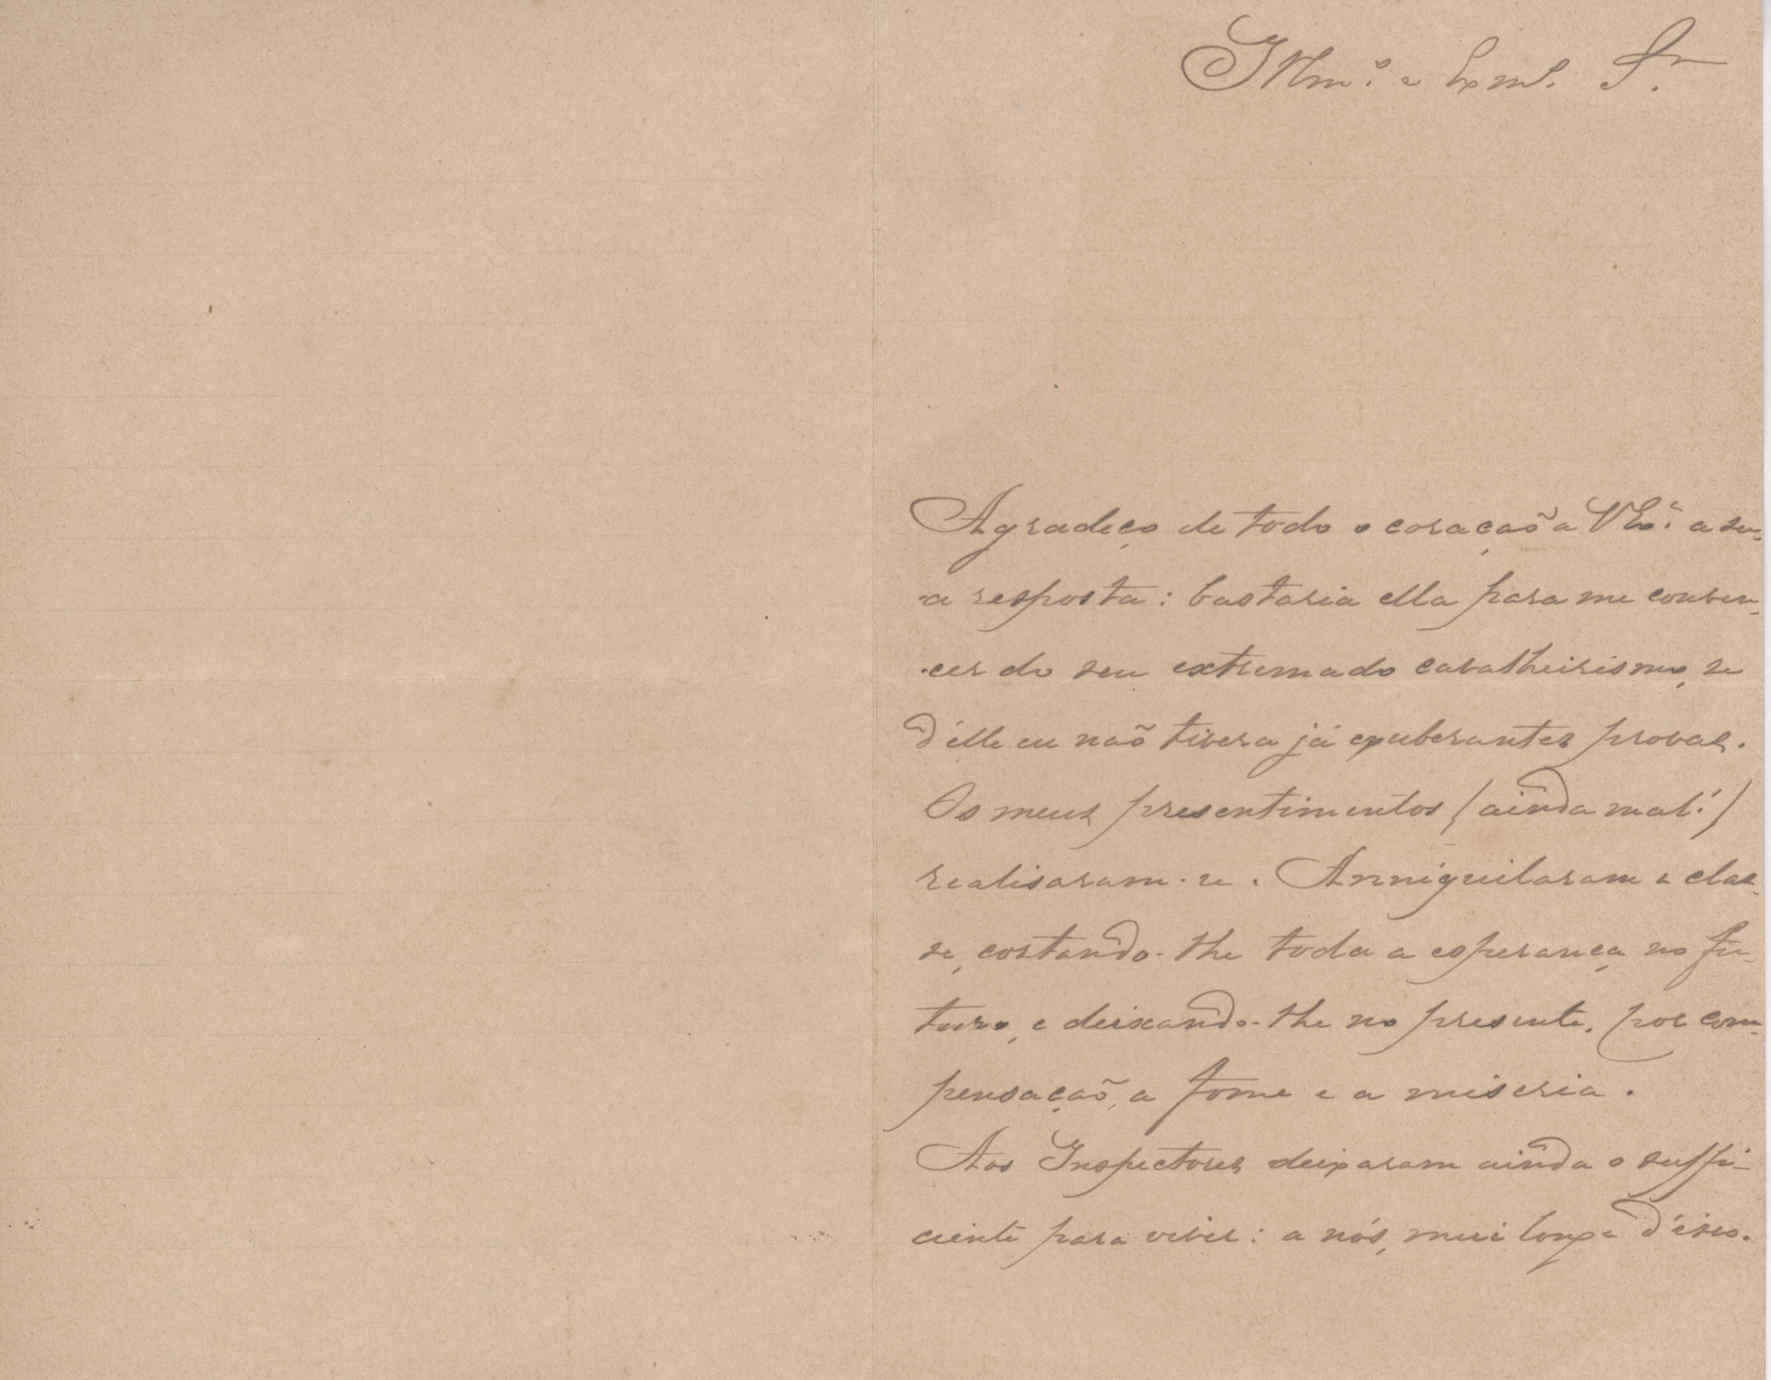 Illmº. e Exmº. Sr.
Agradeço de todo o coração a VExª. a su-
-a resposta: bastaria ella para me conven-
-cer do seu extremado cavalheirismo, se
d'elle eu não tivera já exuberantes provas.
Os meus presentimentos (ainda mal!)
realisaram-se. Anniquilaram a clas-
se, cortando-lhe toda a esperança no fu-
turo, e deixando-lhe no presente, por com-
pensação, a fome e a miseria.
Aos Inspectores deixaram ainda o suffi-
ciente para viver: a nós, mui longe d'isso.